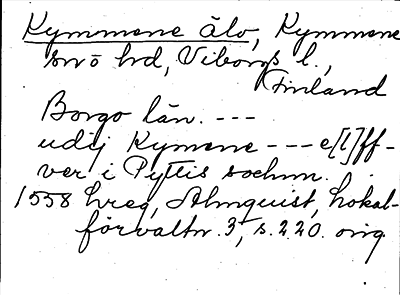 Kymmene älv, Kymmene
srrō hd, Viborgs l.,
Finland
Borgo län. ---
udij Kymene --- e[l]ff-
ver i Pyttis sochnn.
1558 hreg, Almquist, Lokal-
förvaltn. 3, s. 220. orig